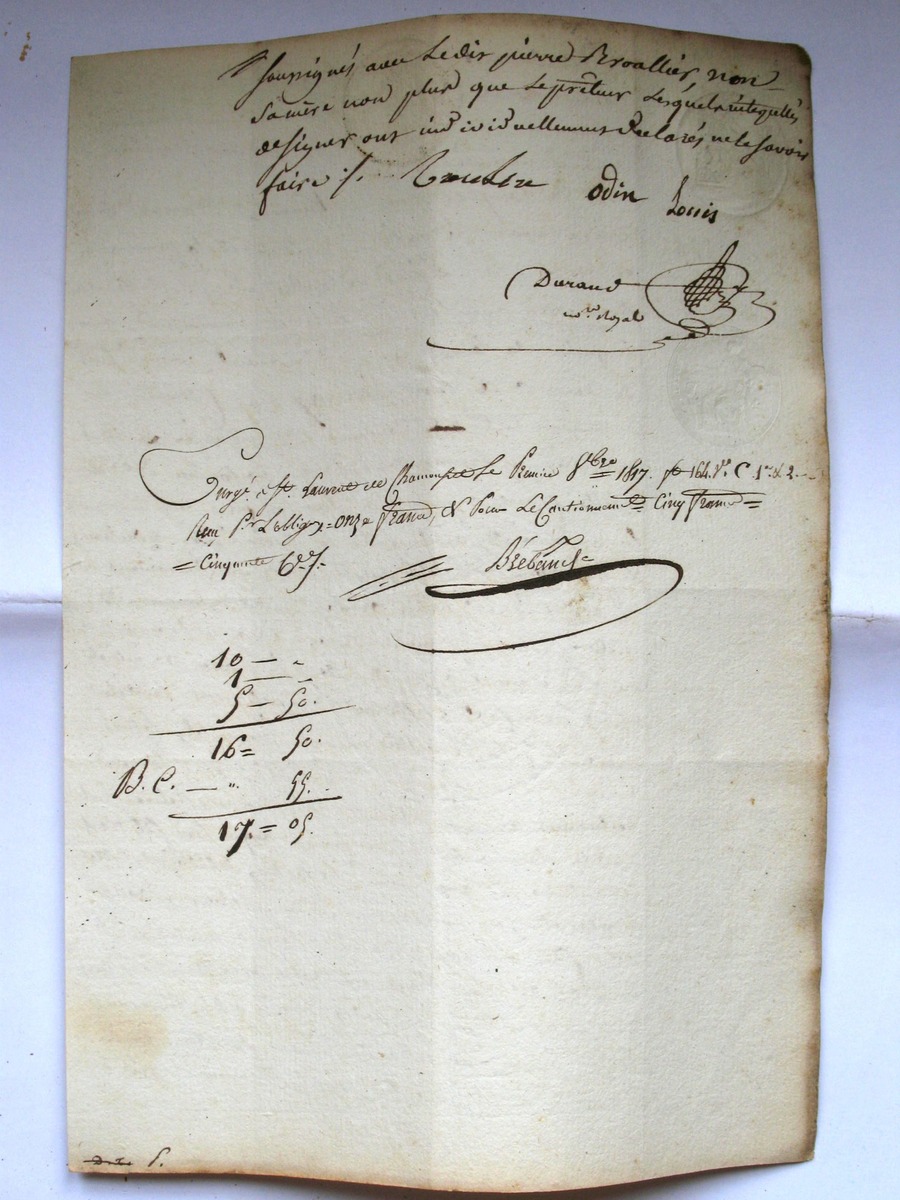 soussignés avec Ledit pierre Rivallier, non
Sa mère non plus que Le prêteur Lesquels interpellés
de signer ont individuellement declarés ne le savoir
faire ·/.
odin Louis
Durand
no.re Royal
St. Laurent de Chamousset Le Premier 8bre 1817. fo 164. Vo. C. 1re & 2
Reçu Pr L'oblig.n = onze francs, & Pour Le Cautionnement Cinq francs =
= Cinquante C.es
Brébant
10 — "
1 — "
5 — 50.
16 = 50.
B. C. — " 55.
17. = 05.